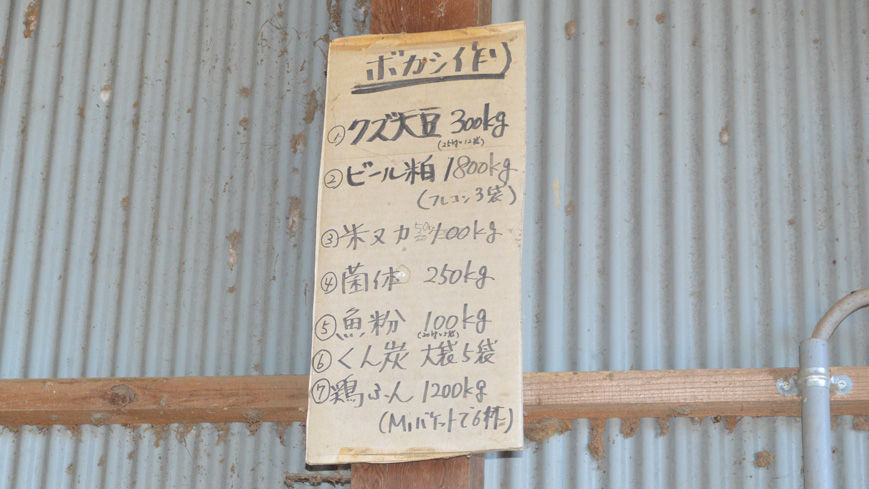 ボカシ作り
①クズ大豆 300kg
(25kg×12袋)
②ビール粕 1800kg
(フレコン3袋)
③米ヌカ 100kg
④菌体 250kg
⑤魚粉 100kg
(20kg×5袋)
⑥くん炭 大袋5袋
⑦鶏ふん 1200kg
(Mバケットで6杯)